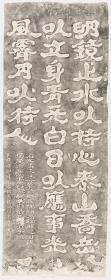 明鏡止水以持心泰山喬岳
以立身青天白日以應事光
風霽月以待人